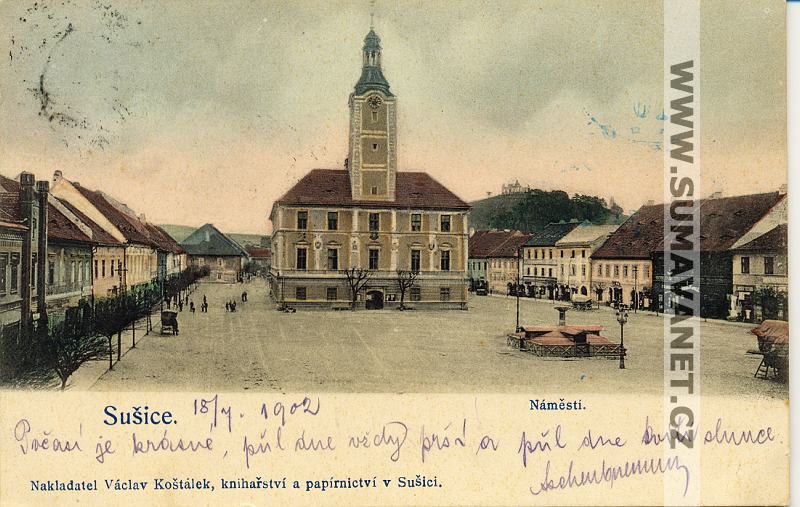 Sušice. 18/7. 1902
Náměstí.
Počasí je krásné, půl dne vždy prší a půl dne svítí slunce.
Nakladatel Václav Koštálek, knihařství a papírnictví v Sušici.
WWW.SUMAVANET.CZ